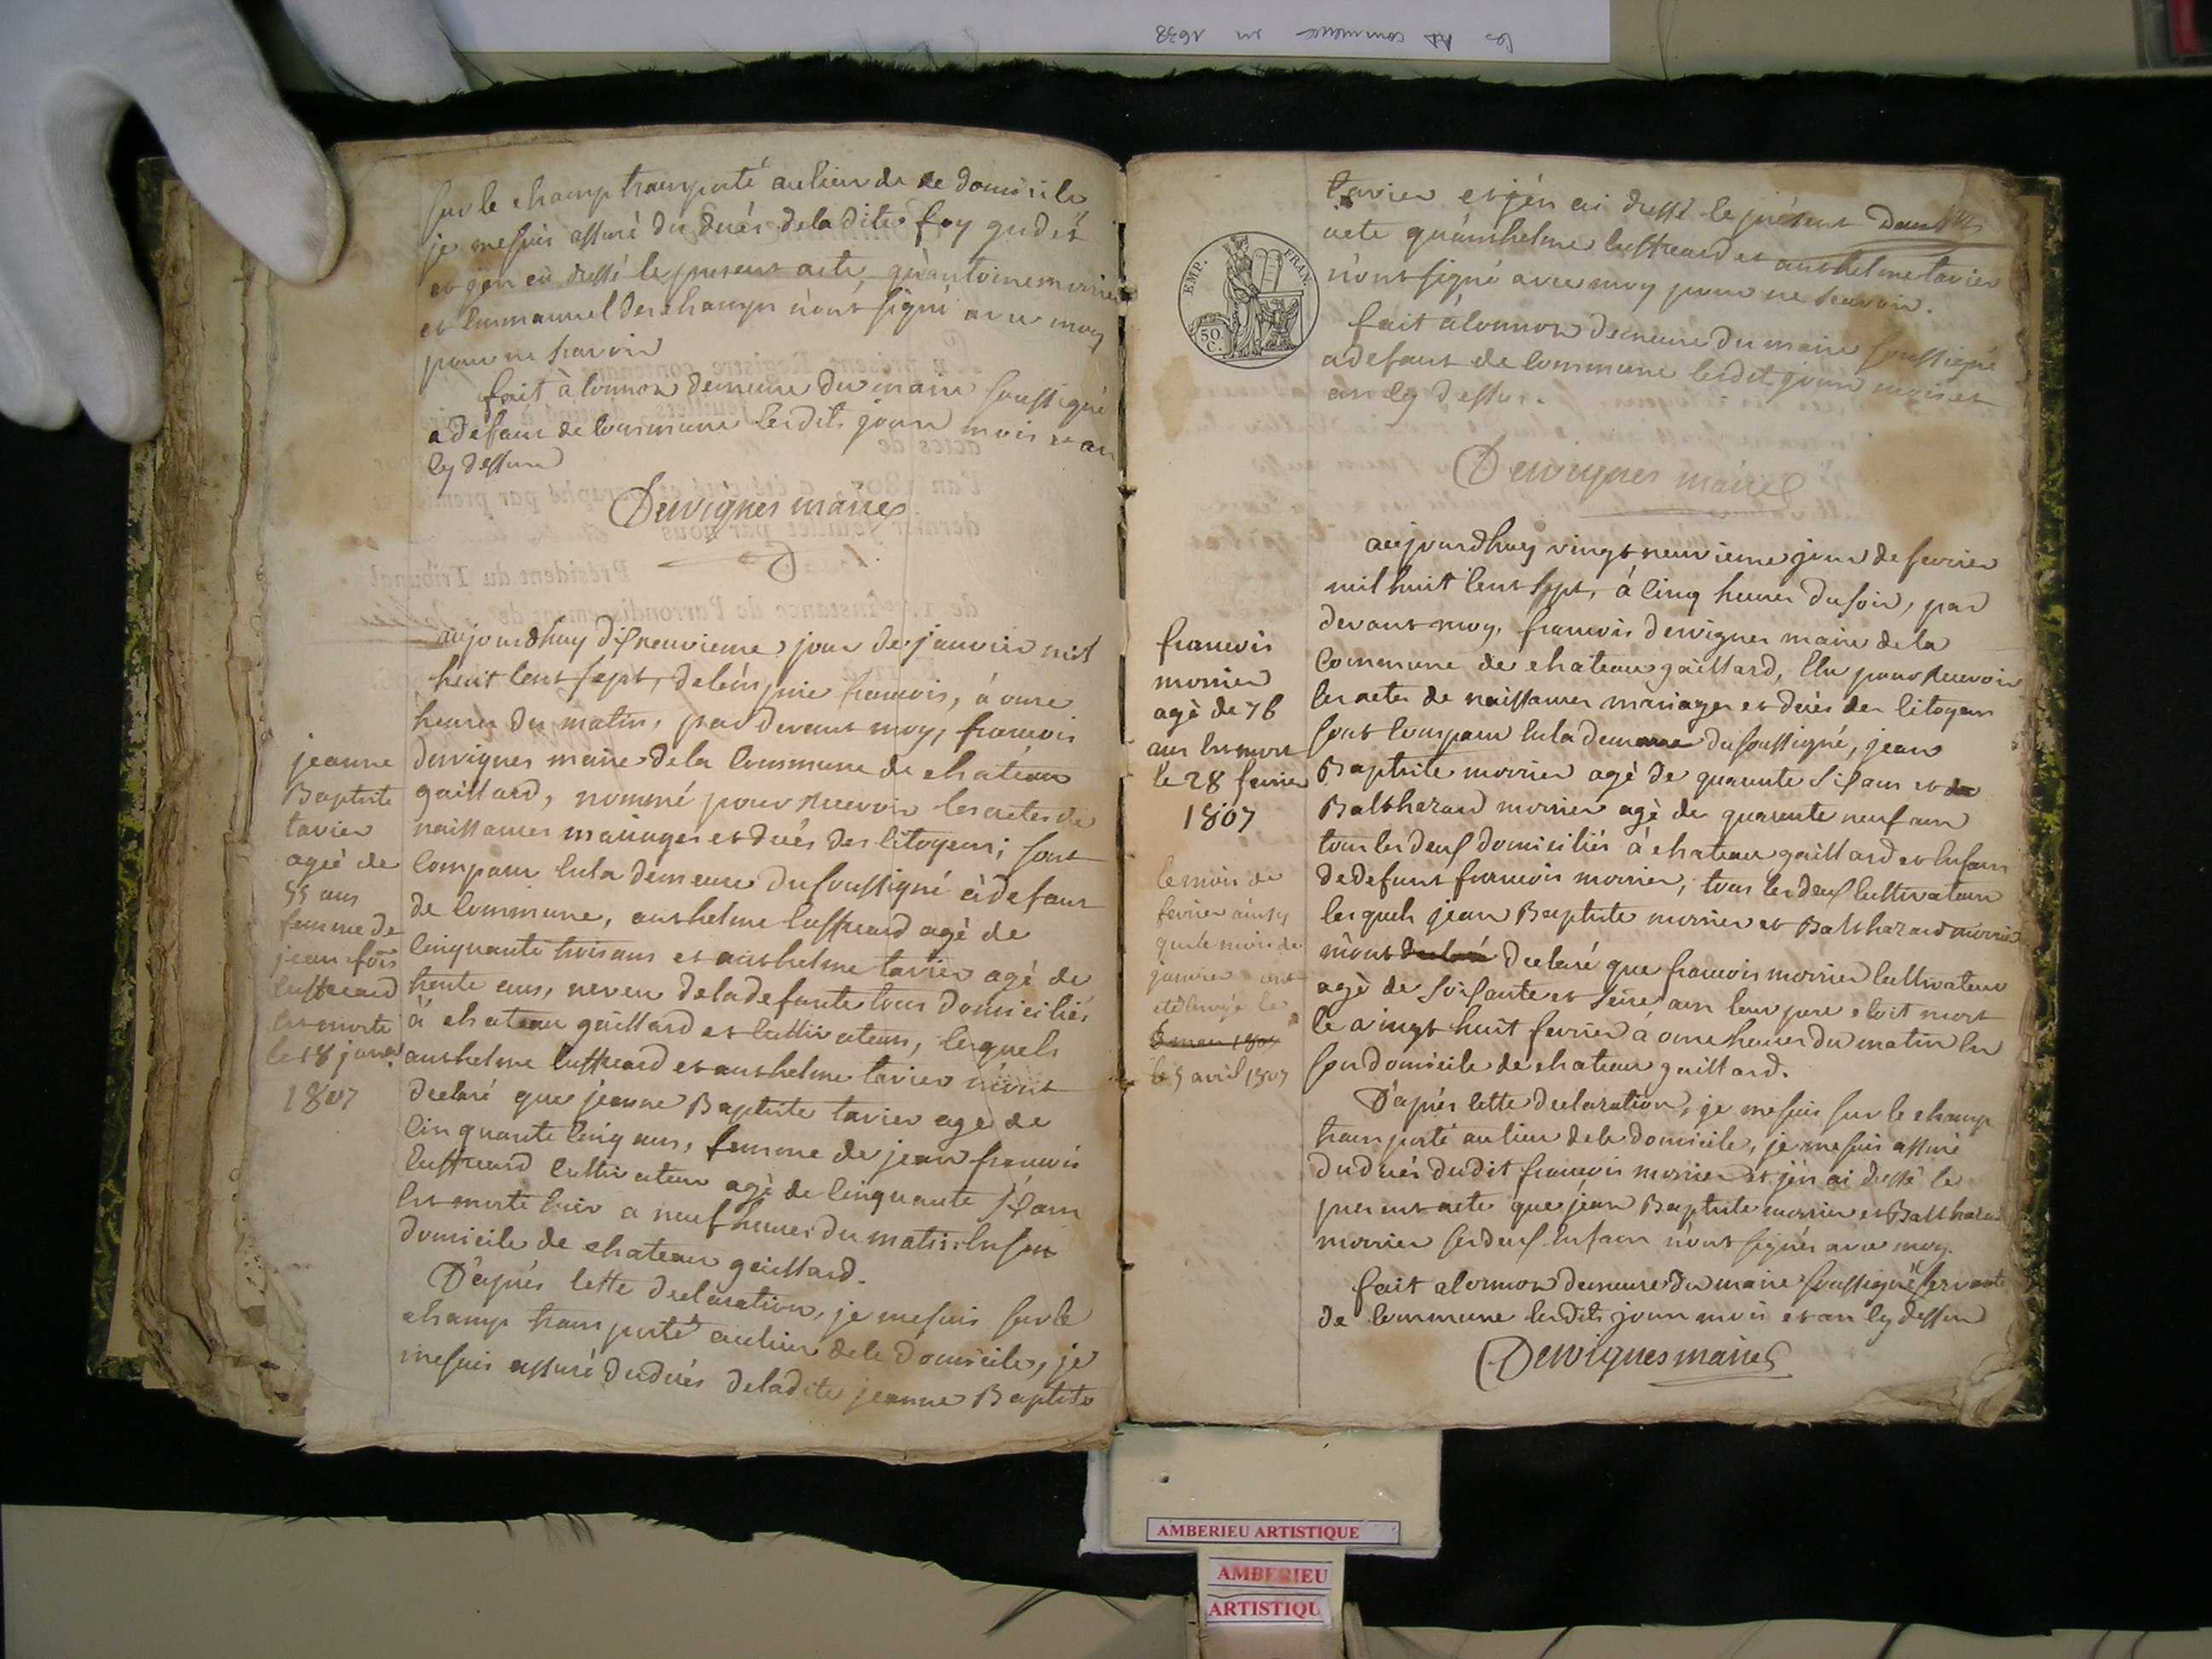 les commence en 1638
sur le champ transporté au lieu de ce domicile
je me suis assuré du decés de la dite foy gudet
et j'en ai dressé le present acte, qu'antoine morrier
et emmanuel deschamps n'ont signé avec moy
pour ne savoir
fait à lonnoz demeure du maire soussigné
a defaut de commune lesdits jour mois et an
cy dessus
Dervignes maire
aujourdhuy dixneuvieme jour de janvier mil
huit cent sept, de l'empire francois, à onze
heures du matin, par devant moy, francois
dervignes maire de la commune de chateau
gaillard, nommé pour recevoir les actes de
naissances mariages et decés des citoyens; sont
comparu en la demeure du soussigné à defaut
de commune, anthelme cuffreard agé de
cinquante trois ans et anthelme tavier agé de
trente ans, neveu de la defunte tous domiciliés
à chateau gaillard et cultivateurs, lesquels
anthelme cuffreard et anthelme tavier m'ont
declaré que jeanne Baptiste tavier agé de
cinquante cinq ans, femme de jean francois
cuffreard cultivateur agé de cinquante six ans
est morte hier a neuf heures du matin en son
domicile de chateau gaillard.
D'aprés cette declaration, je me suis sur le
champ transporté au lieu de ce domicile, je
me suis assuré du decés de la dite jeanne Baptiste
jeanne
Baptiste
tavier
agée de
55 ans
femme de
jean fois
cuffreard
est morte
le 18 janer
1807
EMP. FRAN.
50 C.
tavier et j'en ai dressé le présent
acte qu'anthelme cuffreard et anthelme tavier
n'ont signé avec moy pour ne scavoir.
fait à lonnoz demeure du maire soussigné
a defaut de commune lesdit jour mois et
an cy dessus.
Dervignes maire
aujourdhuy vingt neuvieme jour de fevrier
mil huit cent sept, à cinq heures du soir, par
devant moy, francois dervignes maire de la
commune de chateau gaillard, elu pour recevoir
les actes de naissances mariages et decés des citoyens
sont comparu en la demeure du soussigné, jean
Baptiste morrier agé de quarante six ans et de
Balthazard morrier agé de quarante neuf ans
tous les deux domiciliés à chateau gaillard et enfans
de defunt francois morrier, tous les deux cultivateurs
lesquels jean Baptiste morrier et Balthazard morrier
m'ont declaré declaré que francois morrier cultivateur
agé de soixante et seize ans leur pere etoit mort
le vingt huit fevrier à onze heures du matin en
son domicile de chateau gaillard.
D'aprés cette declaration, je me suis sur le champ
transporté au lieu de ce domicile, je me suis assuré
du decés du dit francois morrier et j'en ai dressé le
present acte que jean Baptiste morrier et Balthazard
morrier ses deux enfans n'ont signés avec moy.
fait a lonnoz demeure du maire soussigné servante
de commune lesdits jour mois et an cy dessus
Dervignes maire
francois
morrier
agé de 76
ans est mort
le 28 fevrier
1807
le mois de
fevrier ainsy
que le mois de
janvier ont
eté envoyé le
le 5 avril 1807
AMBERIEU ARTISTIQUE
AMBERIEU
ARTISTIQU